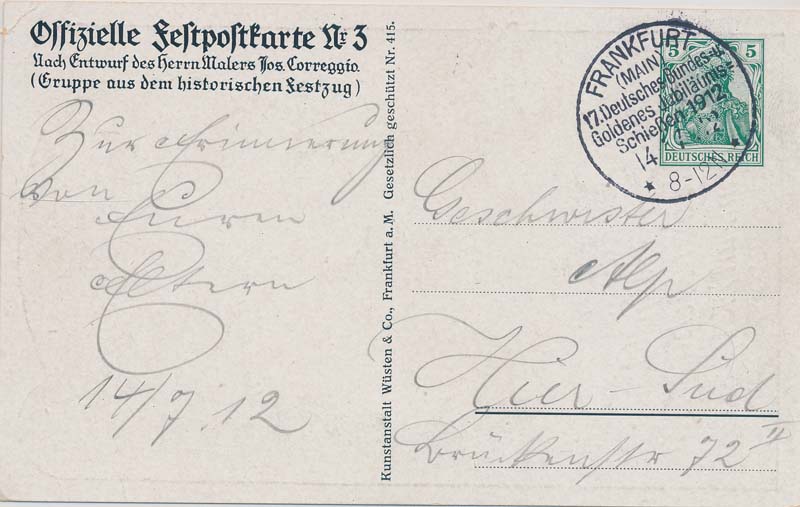 Offizielle Festpostkarte Nr 3
Nach Entwurf des Herrn Malers Jos. Correggio.
(Gruppe aus dem historischen Festzug)
Zur Erinnerung
von
Euren
Eltern
14/7.12
Kunstanstalt Wüsten & Co., Frankfurt a. M. Gesetzlich geschützt Nr. 415.
5 5
DEUTSCHES REICH
FRANKFURT
(MAIN)
17. Deutsches Bundes-u.
Goldenes Jubiläums=
Schießen 1912
14
8-12N
Geschwister
Alp
Hier – Süd
Brückenstr 72 II